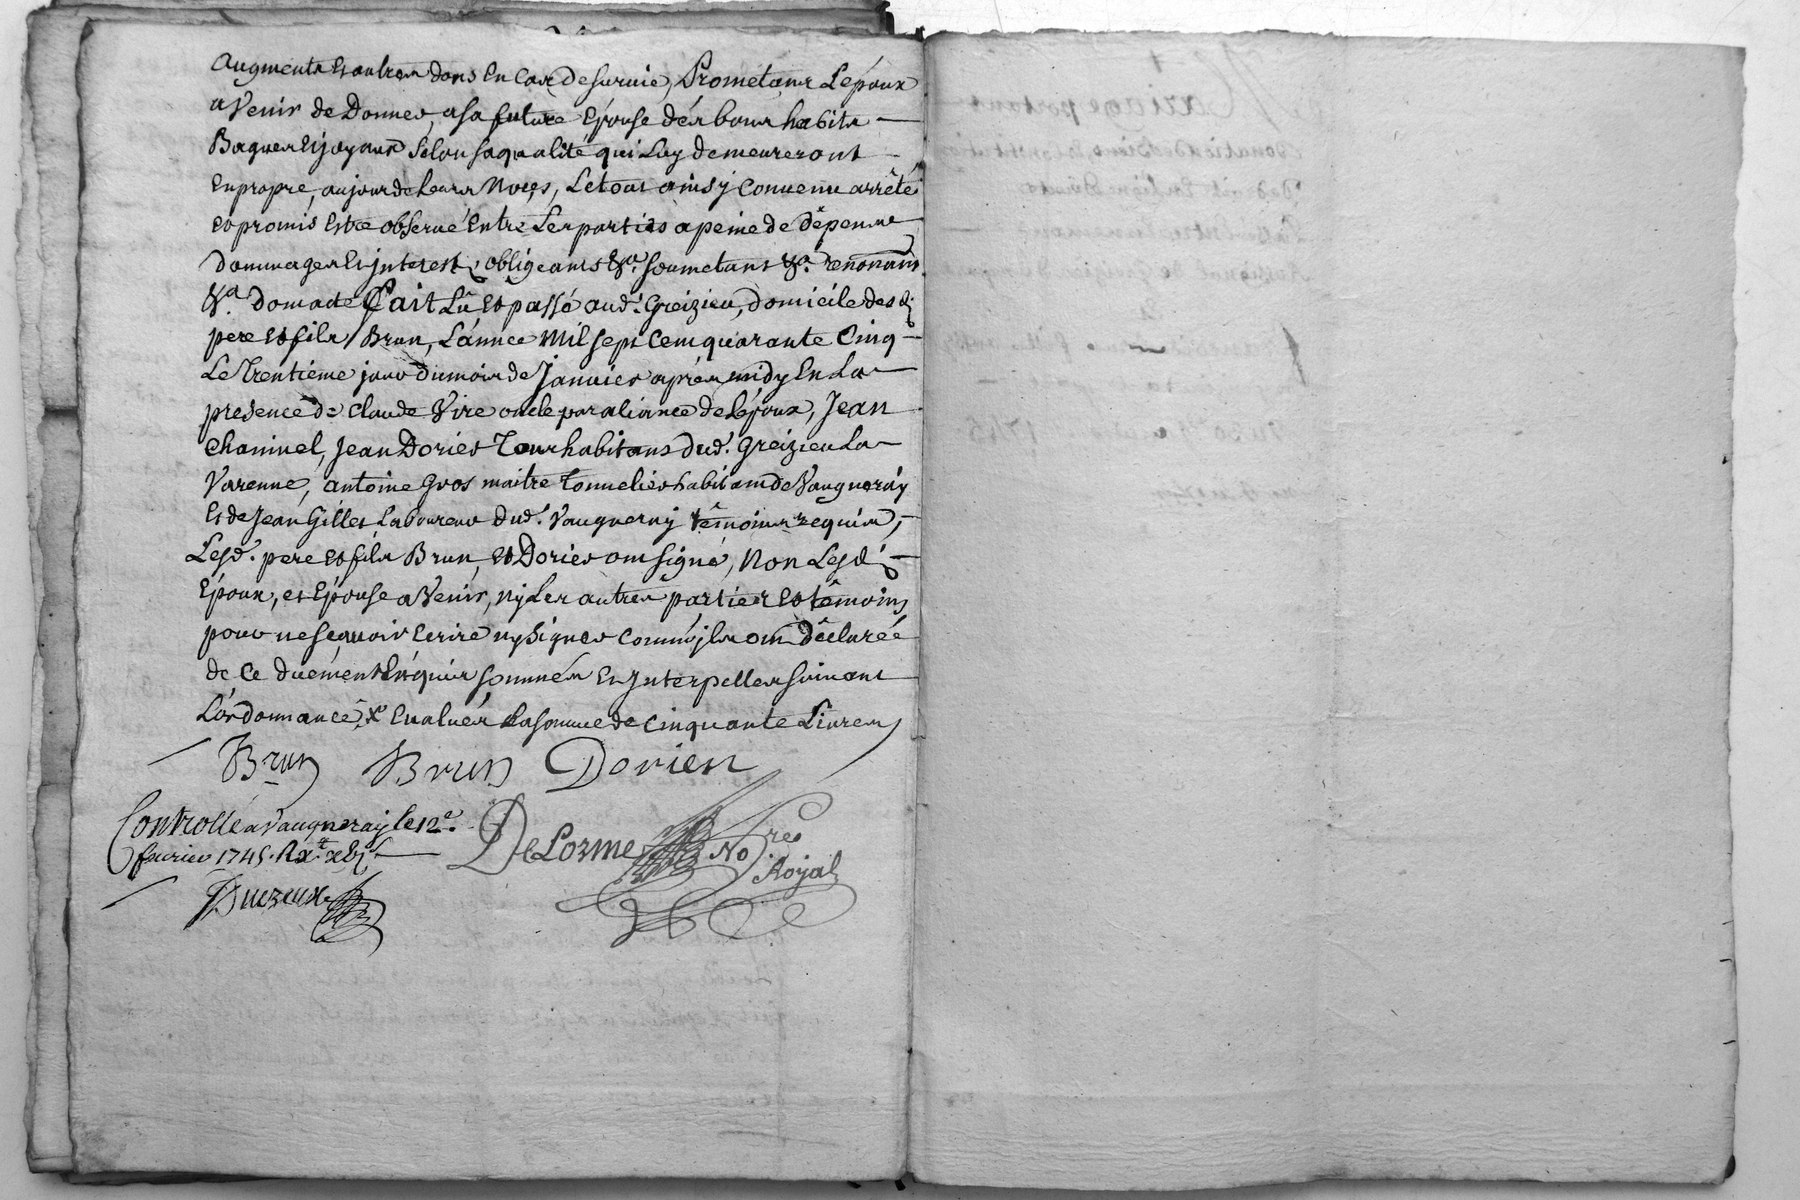 augments et autres dons En Cas De survie, Prometant L'epoux
a Venir de Donner, a sa future Epouse des bons habits
Bagues et joyaux selon sa qualité qui Luy demeureront
En propre, au jour de Leurs Noces, Le tout ainsy Convenu arrêté
et promis Estre observé Entre Les parties a peine de dêpens
Dommages Et jnterest, obligeants &a. soumetans &a. renonçans
&a. Dont acte Fait Lû et passé aud. Greizieu, domicile desd.
pere et fils Brun, L'année Mil sept Cent quarante Cinq
Le Trentiéme jour du mois de Janvier aprés midy En La
presence de Claude Vire oncle par aliance de L'époux, Jean
Chaninel, Jean Dorier Tous habitans dud. Greizieu La
Varenne, antoine Gros maitre Tonnelier habitant de Vaugneray
Et de Jean Gilles Laboureur dud. Vaugneray têmoins requis,
Lesd. pere et fils Brun, et Dorier ont signé, Non Lesd.
Époux, et Epouse a Venir, ny Les autres parties et têmoins
pour ne sçavoir Ecrire ny Signer Comm'jls ont dêclarée
de Ce duëment Enquis sommés Et jnterpellés suivant
L'ordonnance, x Evalués La somme de Cinquante Livres
Brun Brun Dorier
Controllé a Vaugneray le 12e.
fevrier 1745.
DeLorme Nore
Royal